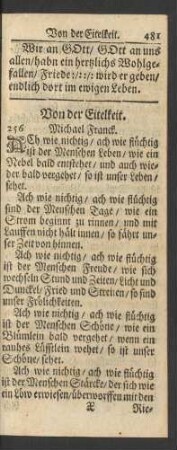 Von der Eitelkeit. 481
Wir an GOtt/ GOtt an uns
allen/ habn ein hertzlichs Wohlge-
fallen/ Friede :/::/: wird er geben/
endlich dort im ewigen Leben.
Von der Eitelkeit.
256 Michael Franck.
ACh wie nichtig/ ach wie flüchtig
ist der Menschen Leben/ wie ein
Nebel bald entstehet/ und auch wie-
der bald vergehet/ so ist unser Leben/
sehet.
Ach wie nichtig/ ach wie flüchtig
sind der Menschen Tage/ wie ein
Strom beginnt zu rinnen/ und mit
Lauffen nicht hält innen/ so fährt un-
ser Zeit von hinnen.
Ach wie nichtig/ ach wie flüchtig
ist der Menschen Freude/ wie sich
wechseln Stund und Zeiten/ Licht und
Dunckel/ Fried und Streiten/ so sind
unser Frölichkeiten.
Ach wie nichtig/ ach wie flüchtig
ist der Menschen Schöne/ wie ein
Blümlein bald vergehet/ wenn ein
rauhes Lüfftlein wehet/ so ist unser
Schöne/ sehet.
Ach wie nichtig/ ach wie flüchtig
ist der Menschen Stärcke/ der sich wie
ein Löw erwiesen/ überworffen mit den
X Rie-